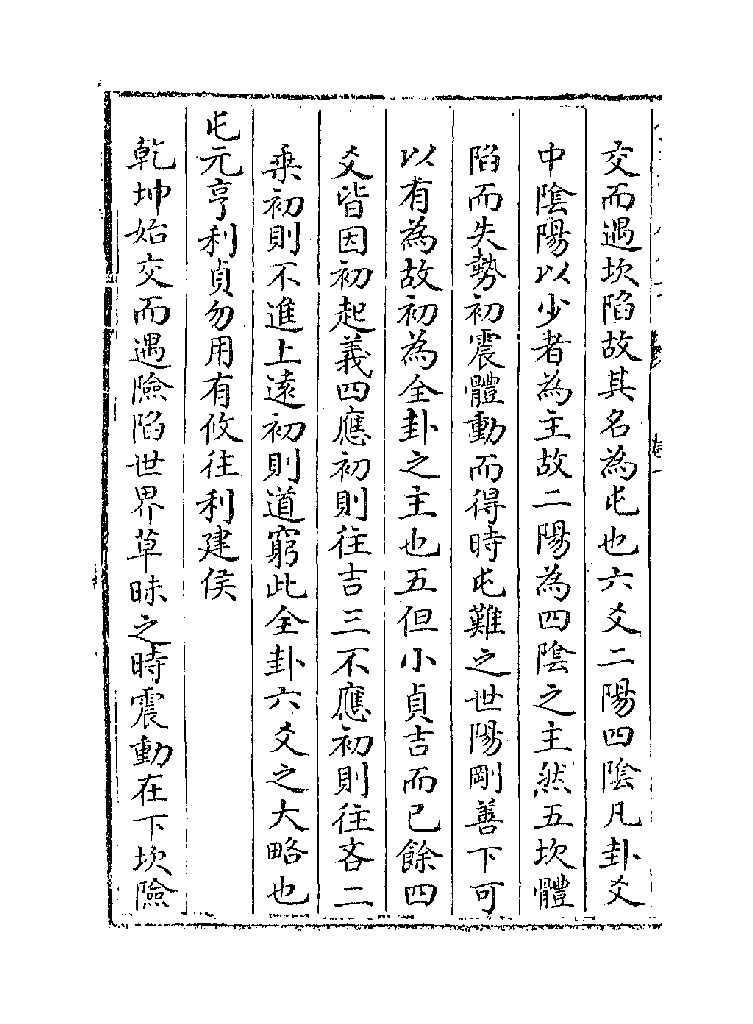 交而遇坎陷故其名為屯也六爻二陽四陰凡卦爻
中陰陽以少者為主故二陽為四陰之主然五坎體
陷而失勢初震體動而得時屯難之世陽剛善下可
以有為故初為全卦之主也五但小貞吉而已餘四
爻皆因初起義四應初則往吉三不應初則往吝二
乘初則不進上遠初則道窮此全卦六爻之大略也
屯元亨利貞勿用有攸往利建侯
乾坤始交而遇險陷世界草昧之時震動在下坎險